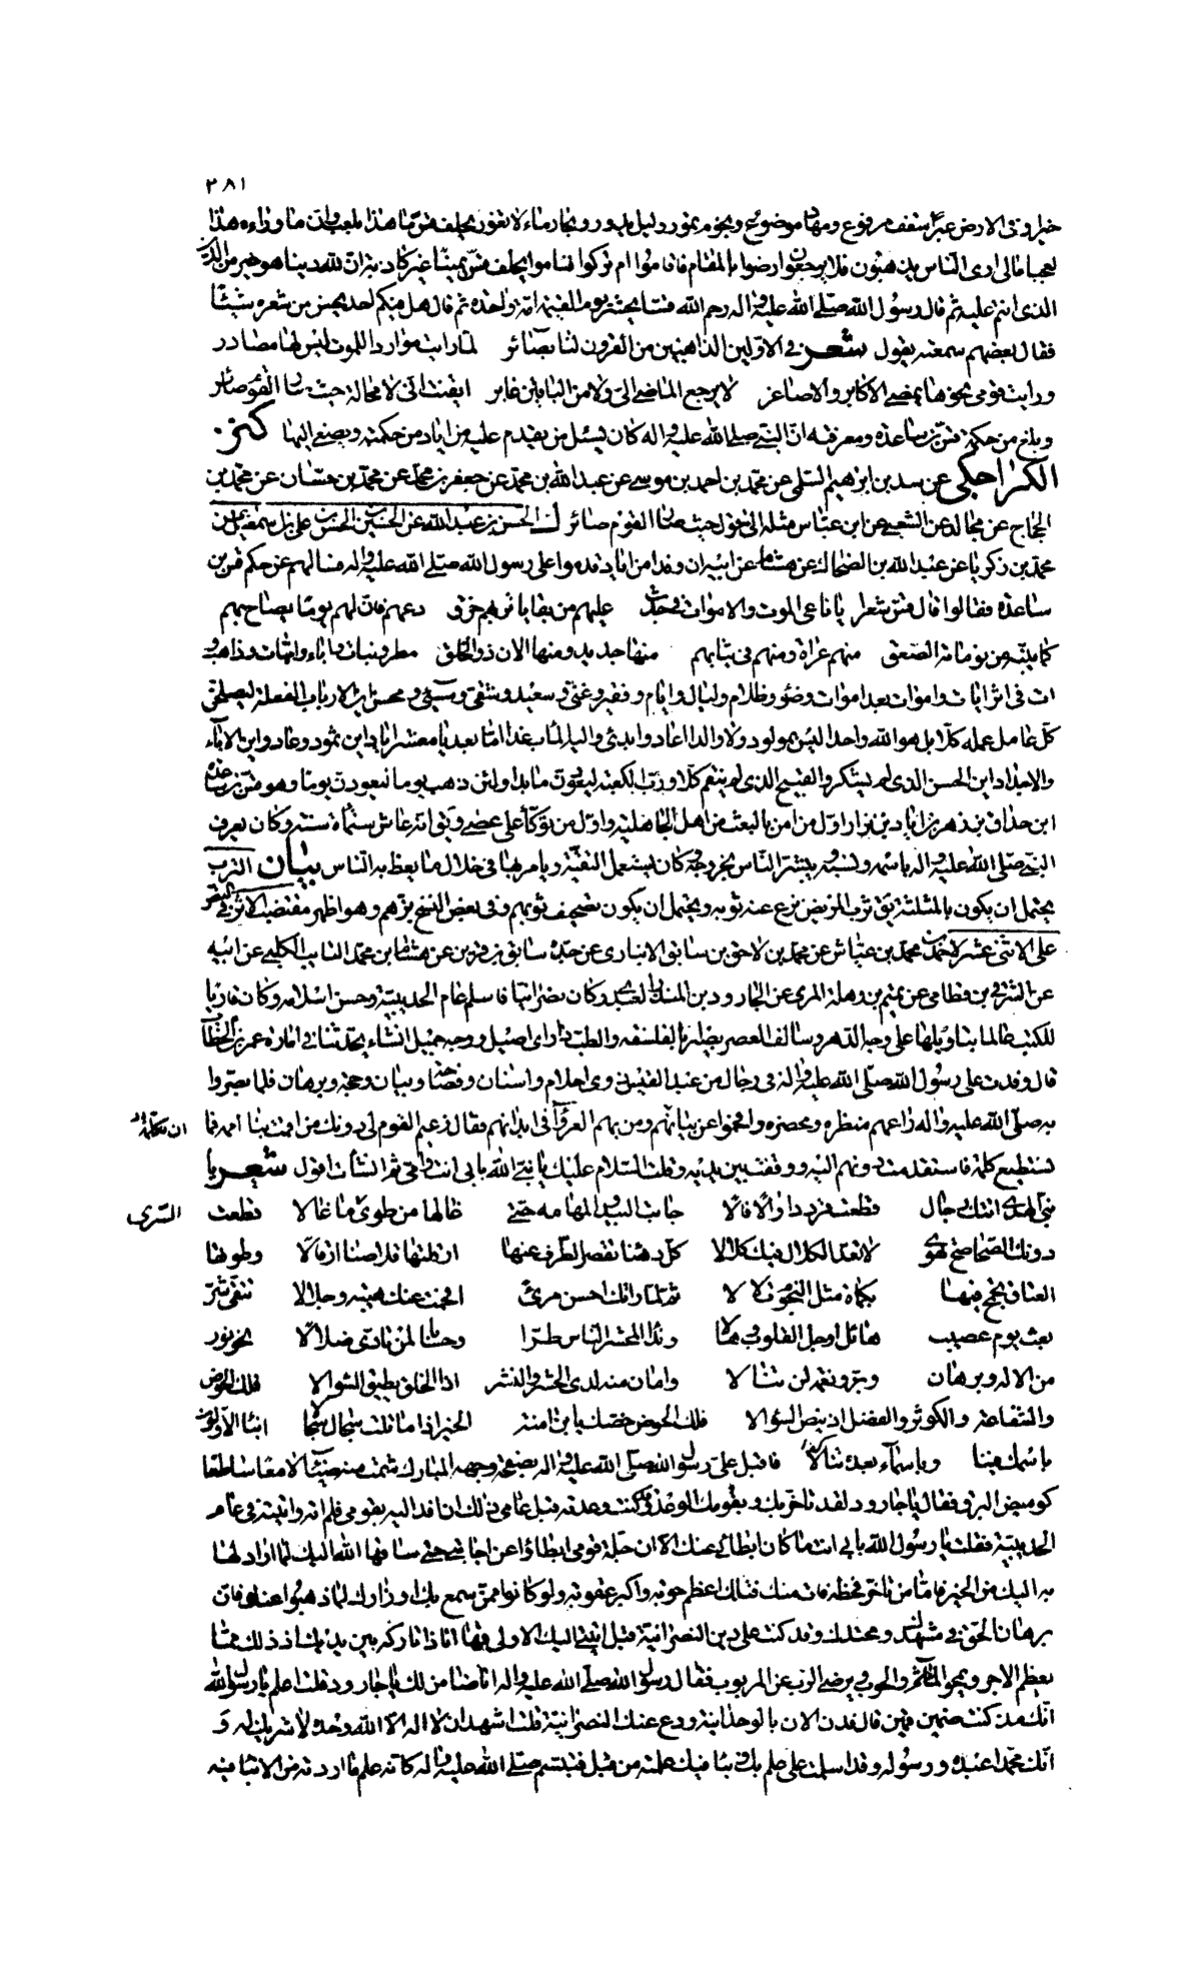 ٣٨١
خبرا وفى الارض عبرا سقف مرفوع ومهاد موضوع ونجوم تمور وليل يدور وبحار ماء لا تغور يحلف قس ما هذا بلعب وان من وراء هذا
لعجبا مالى ارى الناس يذهبون فلا يرجعون ارضوا بالمقام فاقاموا ام تركوا فناموا يحلف قس يمينا غير كاذبة ان لله دينا هو خير من الدين
الذى انتم عليه ثم قال رسول الله صلى الله عليه واله رحم الله قسا يحشر يوم القيمة امة واحدة ثم قال هل فيكم احد يحسن من شعره شيئا
فقال بعضهم سمعته يقول شعر فى الاولين الذاهبين من القرون لنا بصائر لما رايت مواردا للموت ليس لها مصادر
ورايت قومى نحوها يمضى الاكابر والاصاغر لا يرجع الماضى الى ولا من الباقين غابر ايقنت انى لا محالة حيث صار القوم صائر
وبلغ من حكمة قس بن ساعدة ومعرفته ان النبى صلى الله عليه واله كان يسئل من يقدم عليه من اياد من حكمته ويصغى اليها كنز
الكراجكى عن اسد بن ابرهيم السلمى عن محمد بن احمد بن موسى عن عبد الله بن محمد عن جعفر بن محمد عن محمد بن حسان عن محمد بن
الحجاج عن مجالد عن الشعبى عن ابن عباس مثله الى قوله حيث صار القوم صائر ك الحسن بن عبد الله عن الحسين بن الحسين بن على بن اسمعيل عن
محمد بن زكريا عن عبد الله بن الضحاك عن هشام عن ابيه ان وفدا من اياد قدموا على رسول الله صلى الله عليه واله فسالهم عن حكم قس بن
ساعدة فقالوا قال قس شعر يا ناعى الموت والاموات فى جدث عليهم من بقايا بزهم خرق دعهم فان لهم يوما يصاح بهم
كما ينبه من نوماته الصعق منهم عراة ومنهم فى ثيابهم منها الجديد ومنها الآن ذو الخلق مطر ونبات واباء وامهات وذاهب و
ات فى اثر ايات واموات بعد اموات وضوء وظلام وليال وايام وفقير وغنى وسعيد وشقى ومسىء ومحسن اين الارباب الفعلة ليصلحن
كل عامل عمله كلا بل هو الله واحد ليس بمولود ولا والد اعاد وابدى واليه الماب غدا اما بعد يا معشر اياد اين ثمود وعاد واين الآباء
والاجداد اين الحسن الذى لم يشكر والقبيح الذى لم ينقم كلا ورب الكعبة ليعودن ما بدا ولئن ذهب يوما ليعودن يوما وهو قس بن ساعدة
ابن حذاق بن زهر بن اياد بن نزار اول من امن بالبعث من اهل الجاهلية واول من توكأ على عصى ويق انه عاش ستمأة سنة وكان يعرف
النبى صلى الله عليه واله باسمه ونسبه ويبشر الناس بخروجه وكان يستعمل التقية ويامر بها فى خلال ما يعظ به الناس بيان الثرب
يحتمل ان يكون بالمثلثة يق ثرب المريض نزع عنه ثوبه ويحتمل ان يكون تصحيف ثوبهم وفى بعض النسخ بزهم وهو اظهر مقتضب الاثر فى النص
على الاثنى عشر لاحمد بن محمد بن عياش عن محمد بن لاحق بن سابق الانبارى عن جده سابق بن قرين عن هشام بن محمد السائب الكلبى عن ابيه
عن الشرقى بن قطامى عن تميم بن وهلة المرى عن الجارود بن المنذر العبدى وكان نصرانيا فاسلم عام الحديبية وحسن اسلامه وكان قاريا
للكتب عالما بتاويلها على وجه الدهر وسالف العصر بصيرا بالفلسفة والطب ذا راى اصيل ووجه جميل انشاء يحدثنا فى امارة عمر بن الخطاب
قال وفدت على رسول الله صلى الله عليه واله فى رجال من عبد القيس ذوى احلام واسنان وفصاحة وبيان وحجة وبرهان فلما بصروا
به صلى الله عليه واله راعهم منظره ومحضره وافحموا عن بيانهم ومن بهم العرواء فى ابدانهم فقال زعيم القوم لى دونك من اممت بنا اممه فما
ان نكلمه
نستطيع كلمة فاستقدمت دونهم اليه ووقفت بين يديه وقلت السلام عليك يا نبى الله بابى انت وامى ثم انشأت اقول شعر يا
نبى الهدى اتتك رجال قطعت قرددا وآلا فآلا جابت البيد والمهامه حتى غالها من طوى ما غالا قطعت
السرى
دونك الصحاصح تهوى لا تعد الكلال فيك كلالا كل دهناء تقصر الطرف عنها ارقلتها قلاصنا ارقالا وطوتها
العتاق تجمح فيها بكماة مثل النجوم تلالا ثم لما راتك احسن مرئى افحمت عنك هيبة وجلالا تتقى شر
بعث يوم عصيب هائل اوجل القلوب وهالا ونداء لمحشر الناس طرا وحسابا لمن تمادى ضلالا نحو نور
من الاله وبرهان وبر ونعمة لن تنالا وامان منه لدى الحشر والنشر اذ الخلق لا يطيق السؤالا فلك الحوض
والشفاعة والكوثر والفضل اذ ينص السؤالا خصك يا ابن امنة الخير اذا ما تلت سجال سجالا انبأ الاولون
باسمك فينا وباسماء بعده تتتالا فاقبل على رسول الله صلى الله عليه واله بصفحة وجهه المبارك شمت منه ضياء لامعا ساطعا
كوميض البرق فقال يا جارود لقد تاخر بك وبقومك الموعد وقد كنت وعدته قبل عامى ذلك ان افد اليه بقومى فلم اته واتيته فى عام
الحديبية فقلت يا رسول الله بابى انت ما كان ابطائى عنك الا ان جلة قومى ابطأوا عن اجابتى حتى ساقها الله اليك لما اراد لها
به اليك من الخير فاما من تاخر فحظه فات منك فتلك اعظم حوبة واكبر عقوبة ولو كانوا ممن سمع بك او راك لما ذهبوا عنك فان
برهان الحق فى مشهدك ومحتدك وقد كنت على دين النصرانية قبل اتيتى اليك الاولى فها انا ذا تاركه بين يديك اذ ذلك مما
يعظم الاجر ويمحو المآثم والحوب ويرضى الرب عن المربوب فقال رسول الله صلى الله عليه واله انا ضامن لك يا جارود قلت اعلم يا رسول الله
انك بذلك ضمين قمين قال فدن الآن بالوحدانية ودع عنك النصرانية قلت اشهد ان لا اله الا الله وحده لا شريك له و
انك محمدا عبده ورسوله وقد اسلمت على علم بك ونبأ فيك علمته من قبل فتبسم صلى الله عليه واله كانه علم ما اردته من الانباء فيه